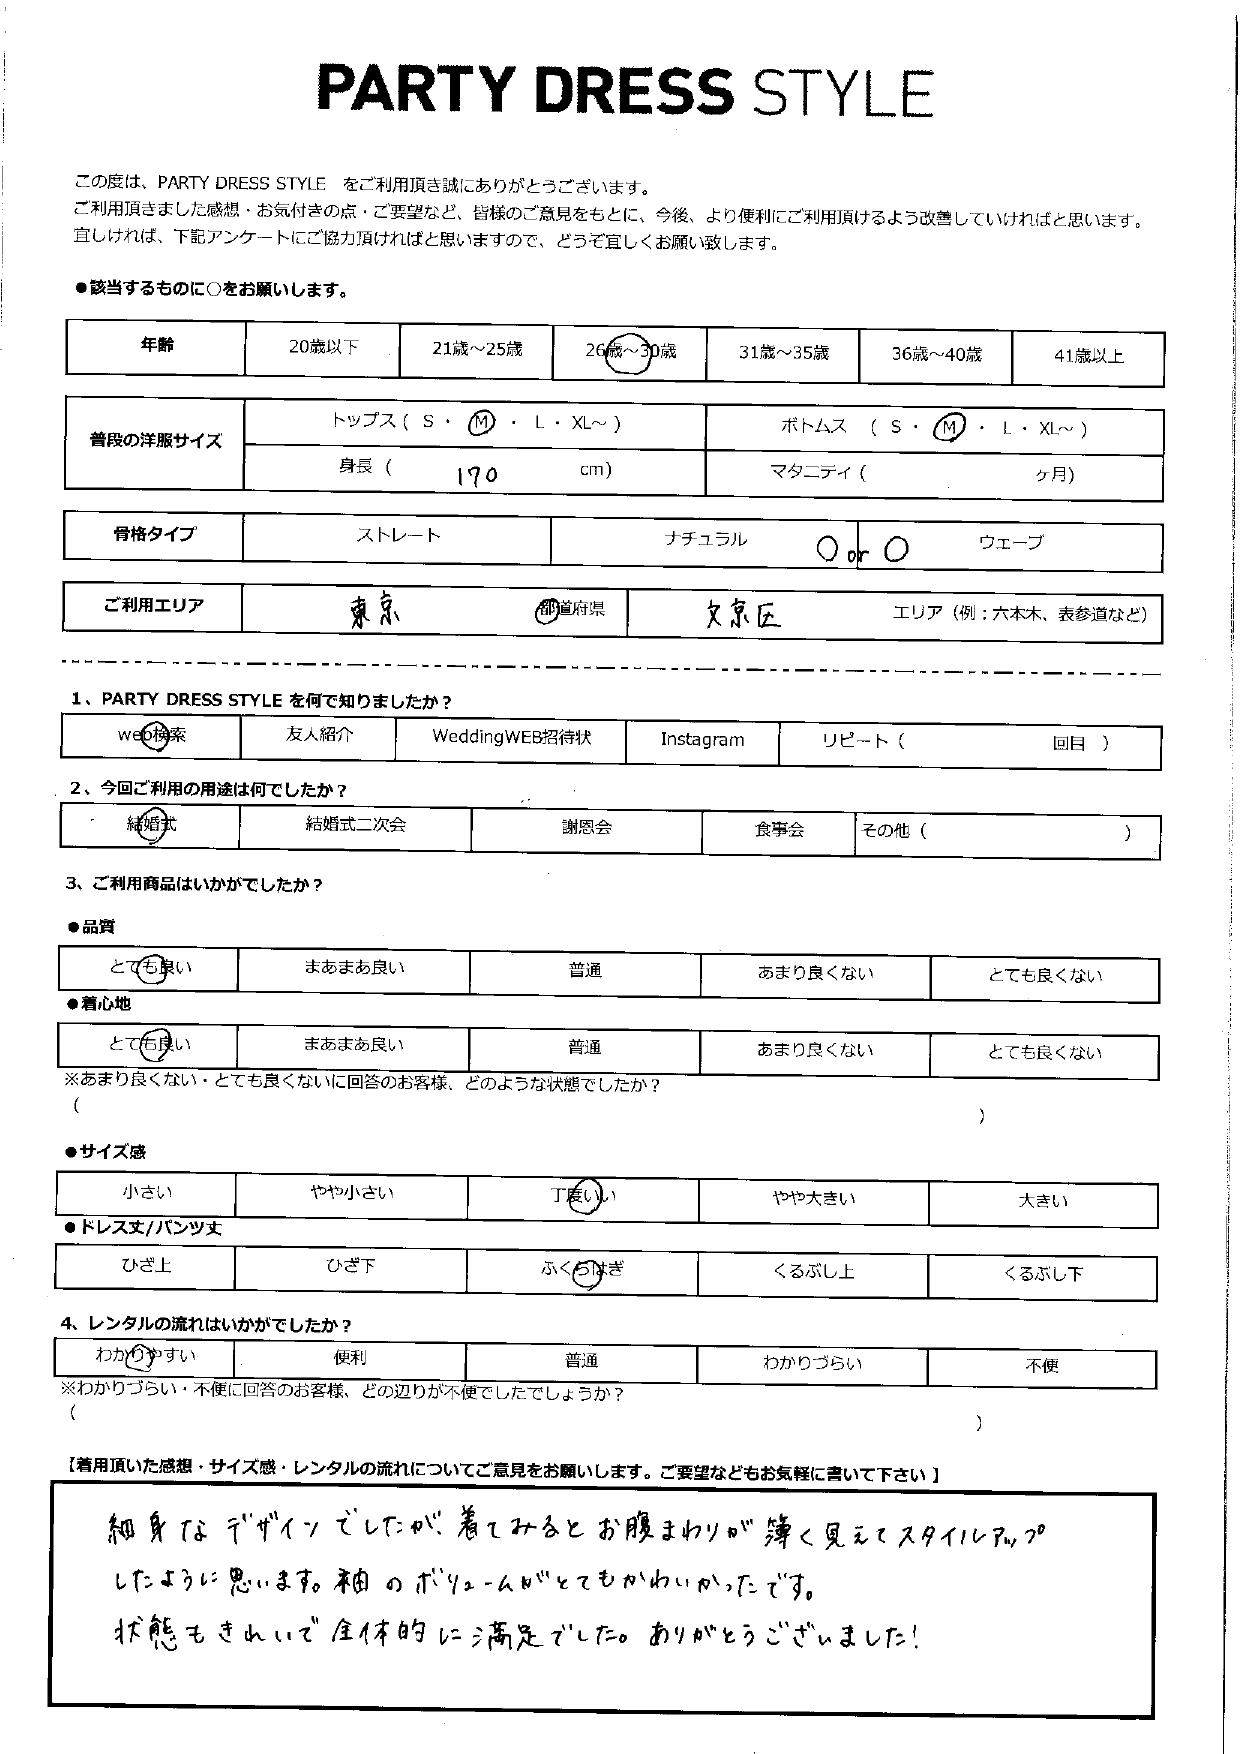 PARTY DRESS STYLE
この度は、PARTY DRESS STYLE をご利用頂き誠にありがとうございます。
ご利用頂きました感想・お気付きの点・ご要望など、皆様のご意見をもとに、今後、より便利にご利用頂けるよう改善していければと思います。
宜しければ、下記アンケートにご協力頂ければと思いますので、どうぞ宜しくお願い致します。
●該当するものに○をお願いします。
年齢 20歳以下 21歳～25歳 26歳～30歳 31歳～35歳 36歳～40歳 41歳以上
普段の洋服サイズ トップス ( S ・ M ・ L ・ XL～ ) ボトムス ( S ・ M ・ L ・ XL～ )
身長 ( 170 cm) マタニティ ( ヶ月)
骨格タイプ ストレート ナチュラル ○ or ○ ウェーブ
ご利用エリア 東京 都道府県 文京区 エリア (例：六本木、表参道など)
1、PARTY DRESS STYLE を何で知りましたか？
web検索 友人紹介 WeddingWEB招待状 Instagram リピート ( 回目 )
2、今回ご利用の用途は何でしたか？
結婚式 結婚式二次会 謝恩会 食事会 その他 ( )
3、ご利用商品はいかがでしたか？
●品質
とても良い まあまあ良い 普通 あまり良くない とても良くない
●着心地
とても良い まあまあ良い 普通 あまり良くない とても良くない
※あまり良くない・とても良くないに回答のお客様、どのような状態でしたか？
( )
●サイズ感
小さい やや小さい 丁度いい やや大きい 大きい
●ドレス丈/パンツ丈
ひざ上 ひざ下 ふくらはぎ くるぶし上 くるぶし下
4、レンタルの流れはいかがでしたか？
わかりやすい 便利 普通 わかりづらい 不便
※わかりづらい・不便に回答のお客様、どの辺りが不便でしたでしょうか？
( )
【着用頂いた感想・サイズ感・レンタルの流れについてご意見をお願いします。ご要望などもお気軽に書いて下さい】
細身なデザインでしたが、着てみるとお腹まわりが薄く見えてスタイルアップ
したように思います。袖のボリュームがとてもかわいかったです。
状態もきれいで全体的に満足でした。ありがとうございました！